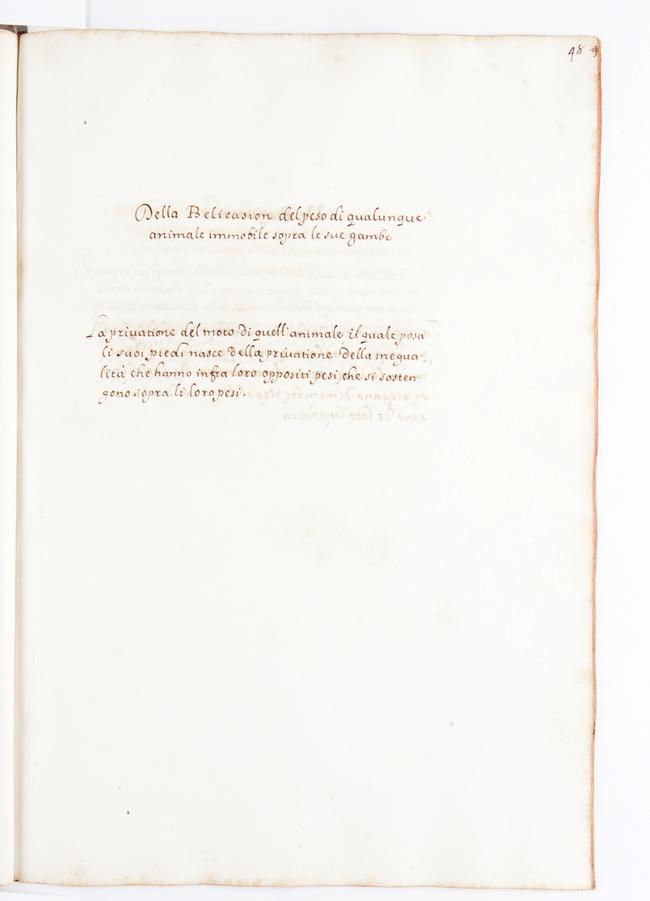 48
Della Belicasion del peso di qualunque
animale immobile sopra le sue gambe
La privatione del moto di quell'animale, il quale posa
li suoi piedi nasce della privatione della inequa,
lità, che hanno infra loro oppositi pesi, che si sosten
gono sopra li loro pesi.